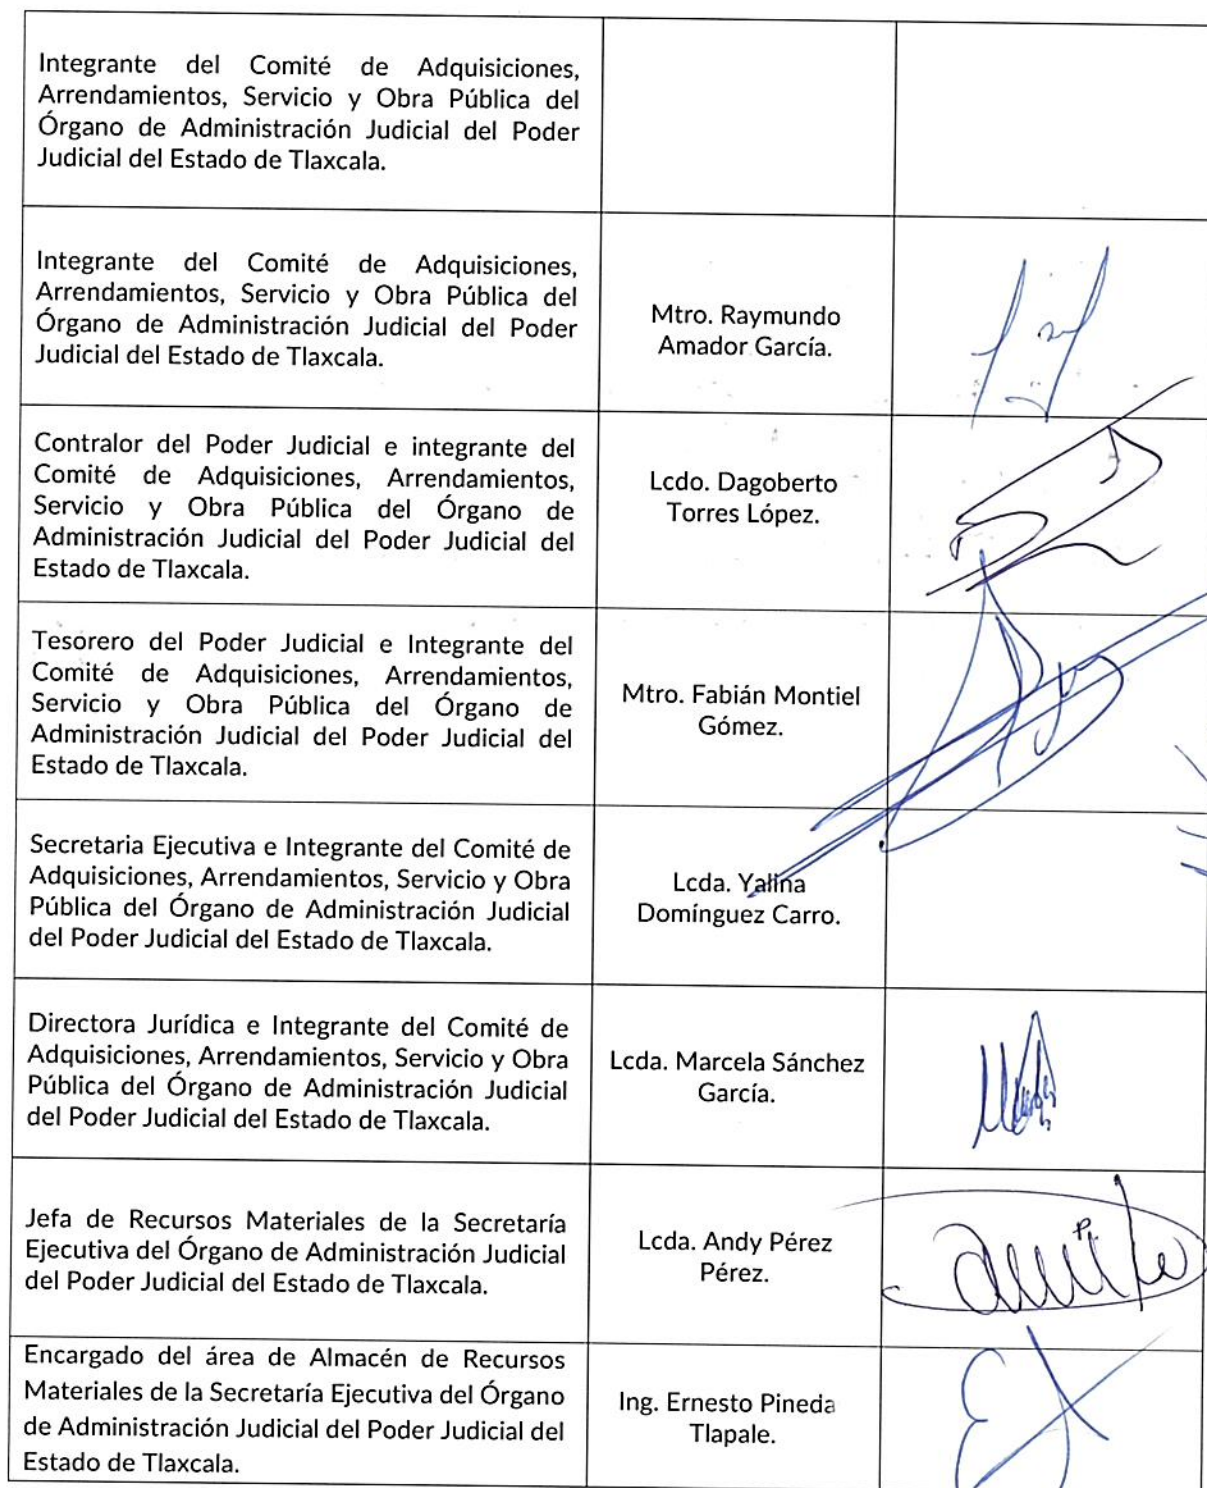 Integrante del Comité de Adquisiciones,
Arrendamientos, Servicio y Obra Pública del
Órgano de Administración Judicial del Poder
Judicial del Estado de Tlaxcala.
Integrante del Comité de Adquisiciones,
Arrendamientos, Servicio y Obra Pública del
Órgano de Administración Judicial del Poder
Judicial del Estado de Tlaxcala.
Mtro. Raymundo
Amador García.
Contralor del Poder Judicial e integrante del
Comité de Adquisiciones, Arrendamientos,
Servicio y Obra Pública del Órgano de
Administración Judicial del Poder Judicial del
Estado de Tlaxcala.
Lcdo. Dagoberto
Torres López.
Tesorero del Poder Judicial e Integrante del
Comité de Adquisiciones, Arrendamientos,
Servicio y Obra Pública del Órgano de
Administración Judicial del Poder Judicial del
Estado de Tlaxcala.
Mtro. Fabián Montiel
Gómez.
Secretaria Ejecutiva e Integrante del Comité de
Adquisiciones, Arrendamientos, Servicio y Obra
Pública del Órgano de Administración Judicial
del Poder Judicial del Estado de Tlaxcala.
Lcda. Yalina
Domínguez Carro.
Directora Jurídica e Integrante del Comité de
Adquisiciones, Arrendamientos, Servicio y Obra
Pública del Órgano de Administración Judicial
del Poder Judicial del Estado de Tlaxcala.
Lcda. Marcela Sánchez
García.
Jefa de Recursos Materiales de la Secretaría
Ejecutiva del Órgano de Administración Judicial
del Poder Judicial del Estado de Tlaxcala.
Lcda. Andy Pérez
Pérez.
Encargado del área de Almacén de Recursos
Materiales de la Secretaría Ejecutiva del Órgano
de Administración Judicial del Poder Judicial del
Estado de Tlaxcala.
Ing. Ernesto Pineda
Tlapale.